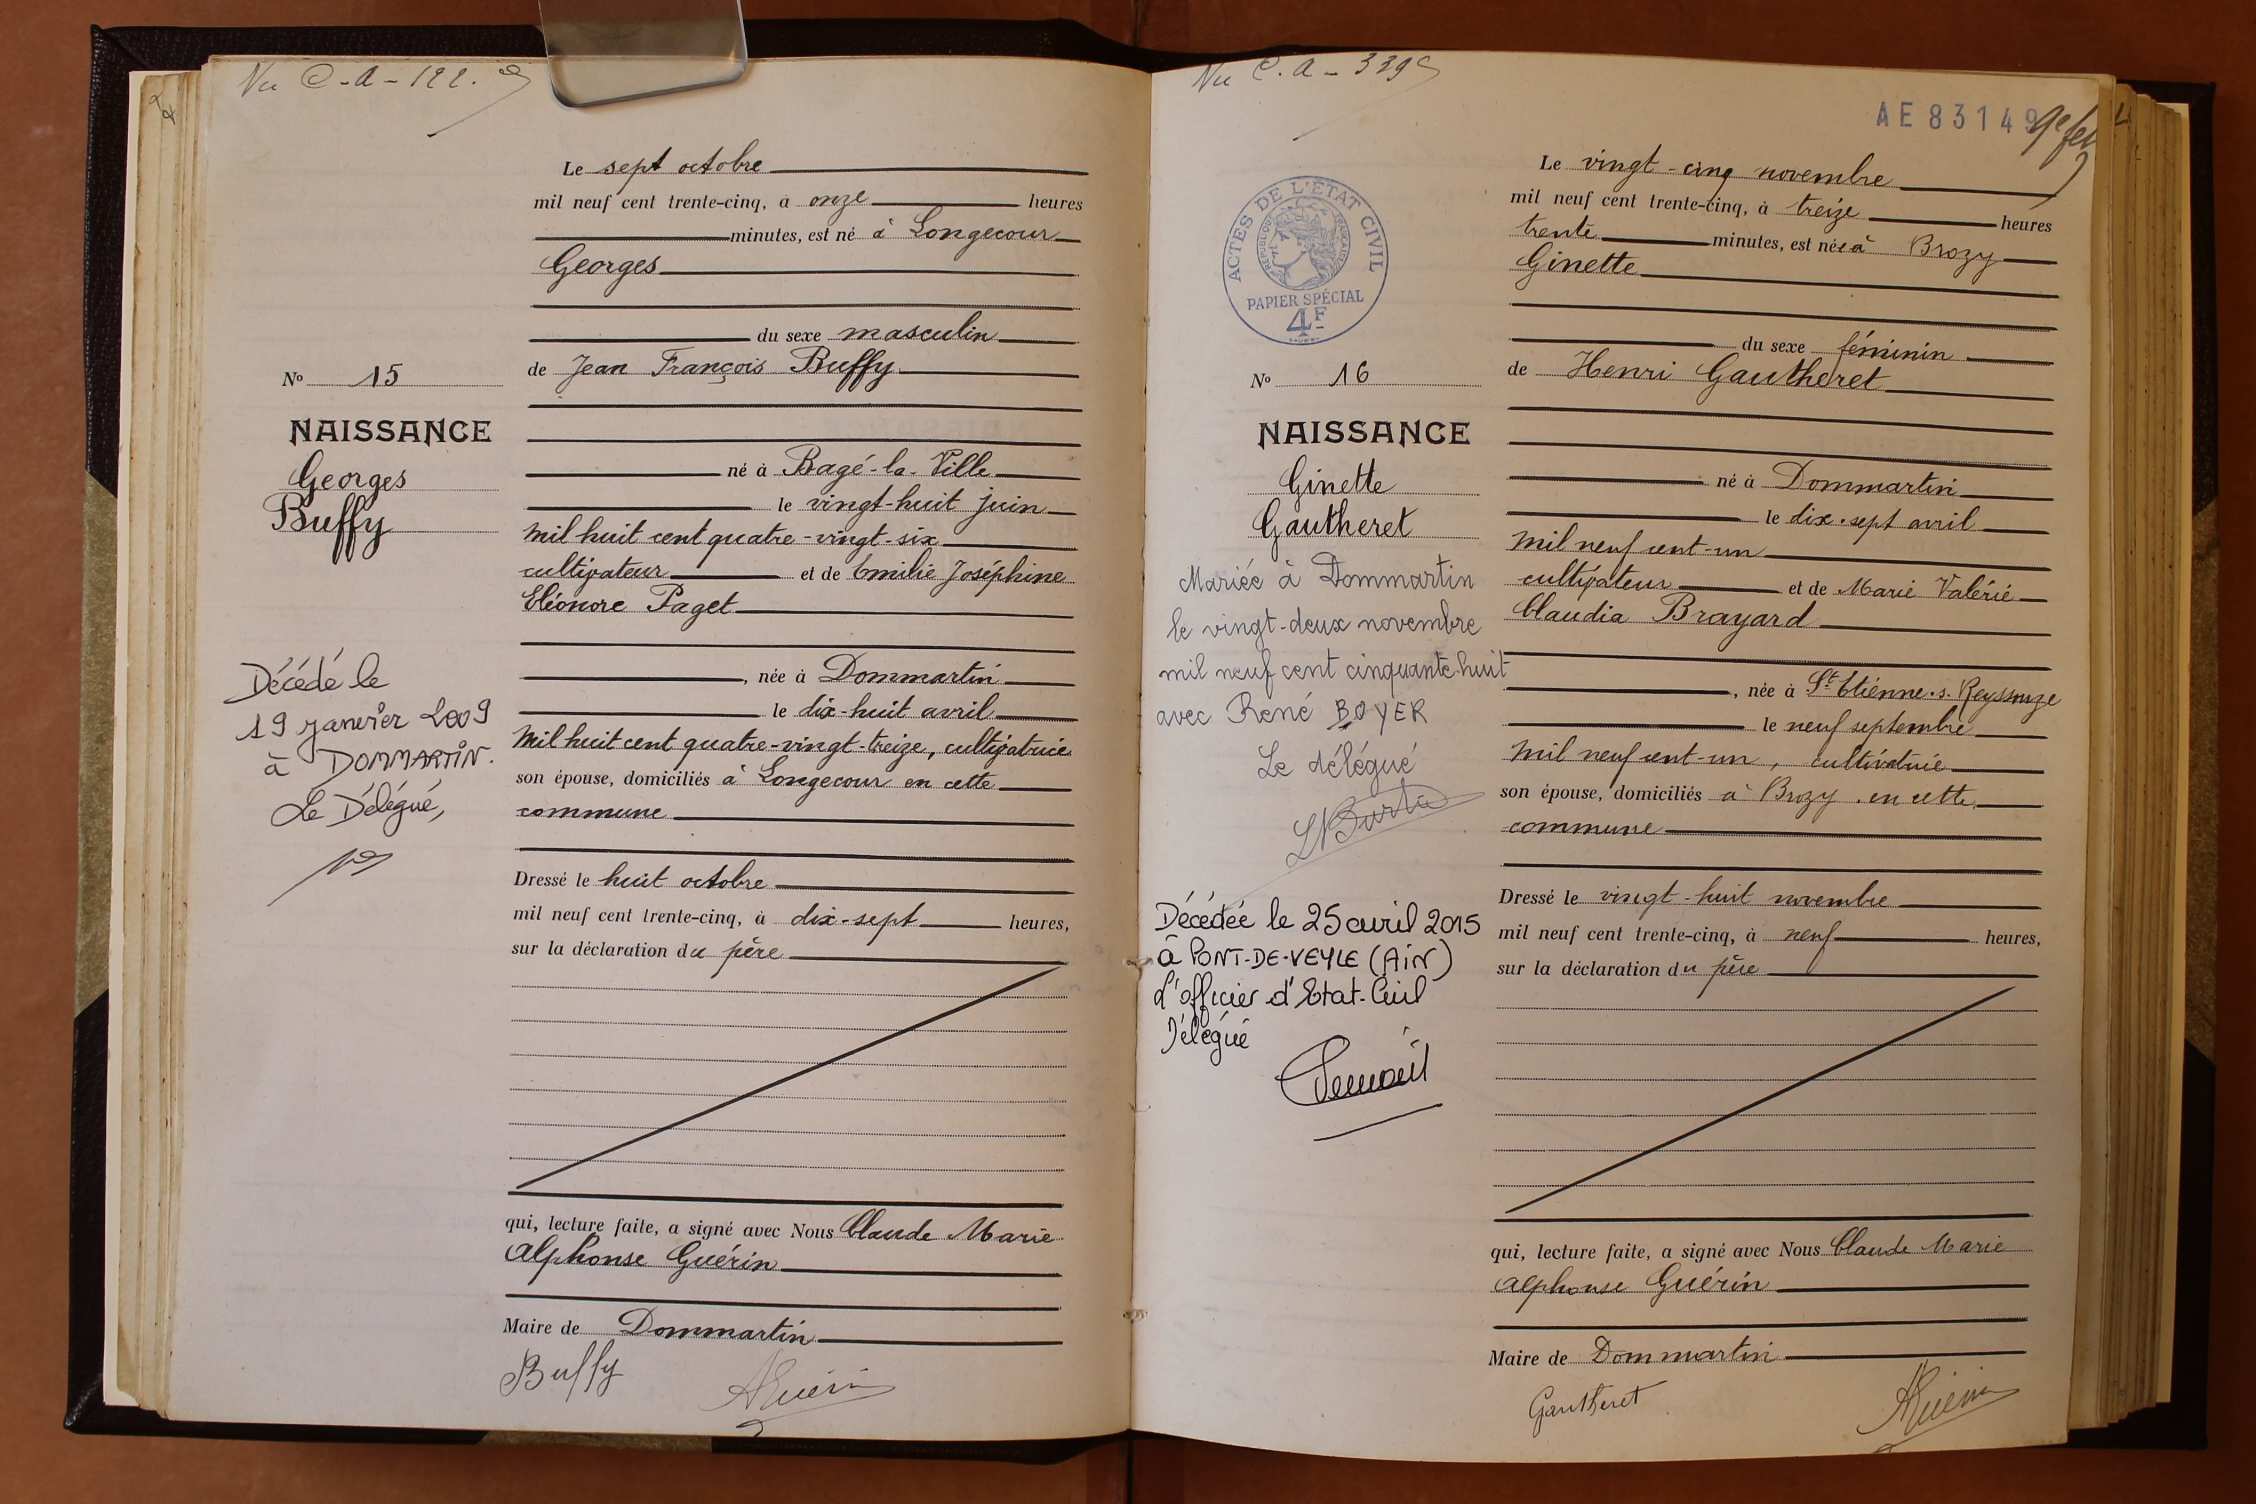 Vu C-A-122.
Le sept octobre
mil neuf cent trente-cinq, à onze heures
minutes, est né à Longecour
Georges
du sexe masculin
No 15
de Jean François Buffy
NAISSANCE
Georges
Buffy
né à Bagé-la-Ville
le vingt-huit juin
mil huit cent quatre-vingt-six
cultivateur et de Emilie Joséphine
Eléonore Paget
Décédé le
19 janvier 2009
à DOMMARTIN.
Le Délégué,
, née à Dommartin
le dix-huit avril
mil huit cent quatre-vingt-treize, cultivatrice
son épouse, domiciliés à Longecour en cette
commune
Dressé le huit octobre
mil neuf cent trente-cinq, à dix-sept heures,
sur la déclaration du père
qui, lecture faite, a signé avec Nous Claude Marie
Alphonse Guérin
Maire de Dommartin
Buffy
AGuérin
Vu C.A-339
AE83149
Le vingt-cinq novembre
mil neuf cent trente-cinq, à treize heures
trente minutes, est née à Brozy
Ginette
ACTES DE L'ÉTAT CIVIL
RÉPUBLIQUE FRANÇAISE
PAPIER SPÉCIAL
4F
du sexe féminin
No 16
de Henri Gautheret
NAISSANCE
Ginette
Gautheret
né à Dommartin
le dix-sept avril
mil neuf cent-un
cultivateur et de Marie Valérie
Claudia Brayard
Mariée à Dommartin
le vingt-deux novembre
mil neuf cent cinquante-huit
avec René BOYER
Le délégué
, née à St Etienne.s.Reyssouze
le neuf septembre
mil neuf cent-un, cultivatrice
son épouse, domiciliés à Brozy, en cette
commune
Décédée le 25 avril 2015
à PONT-DE-VEYLE (AIN)
L'officier d'Etat-Civil
Délégué
Dressé le vingt-huit novembre
mil neuf cent trente-cinq, à neuf heures,
sur la déclaration du père
qui, lecture faite, a signé avec Nous Claude Marie
Alphonse Guérin
Maire de Dommartin
Gautheret
AGuérin